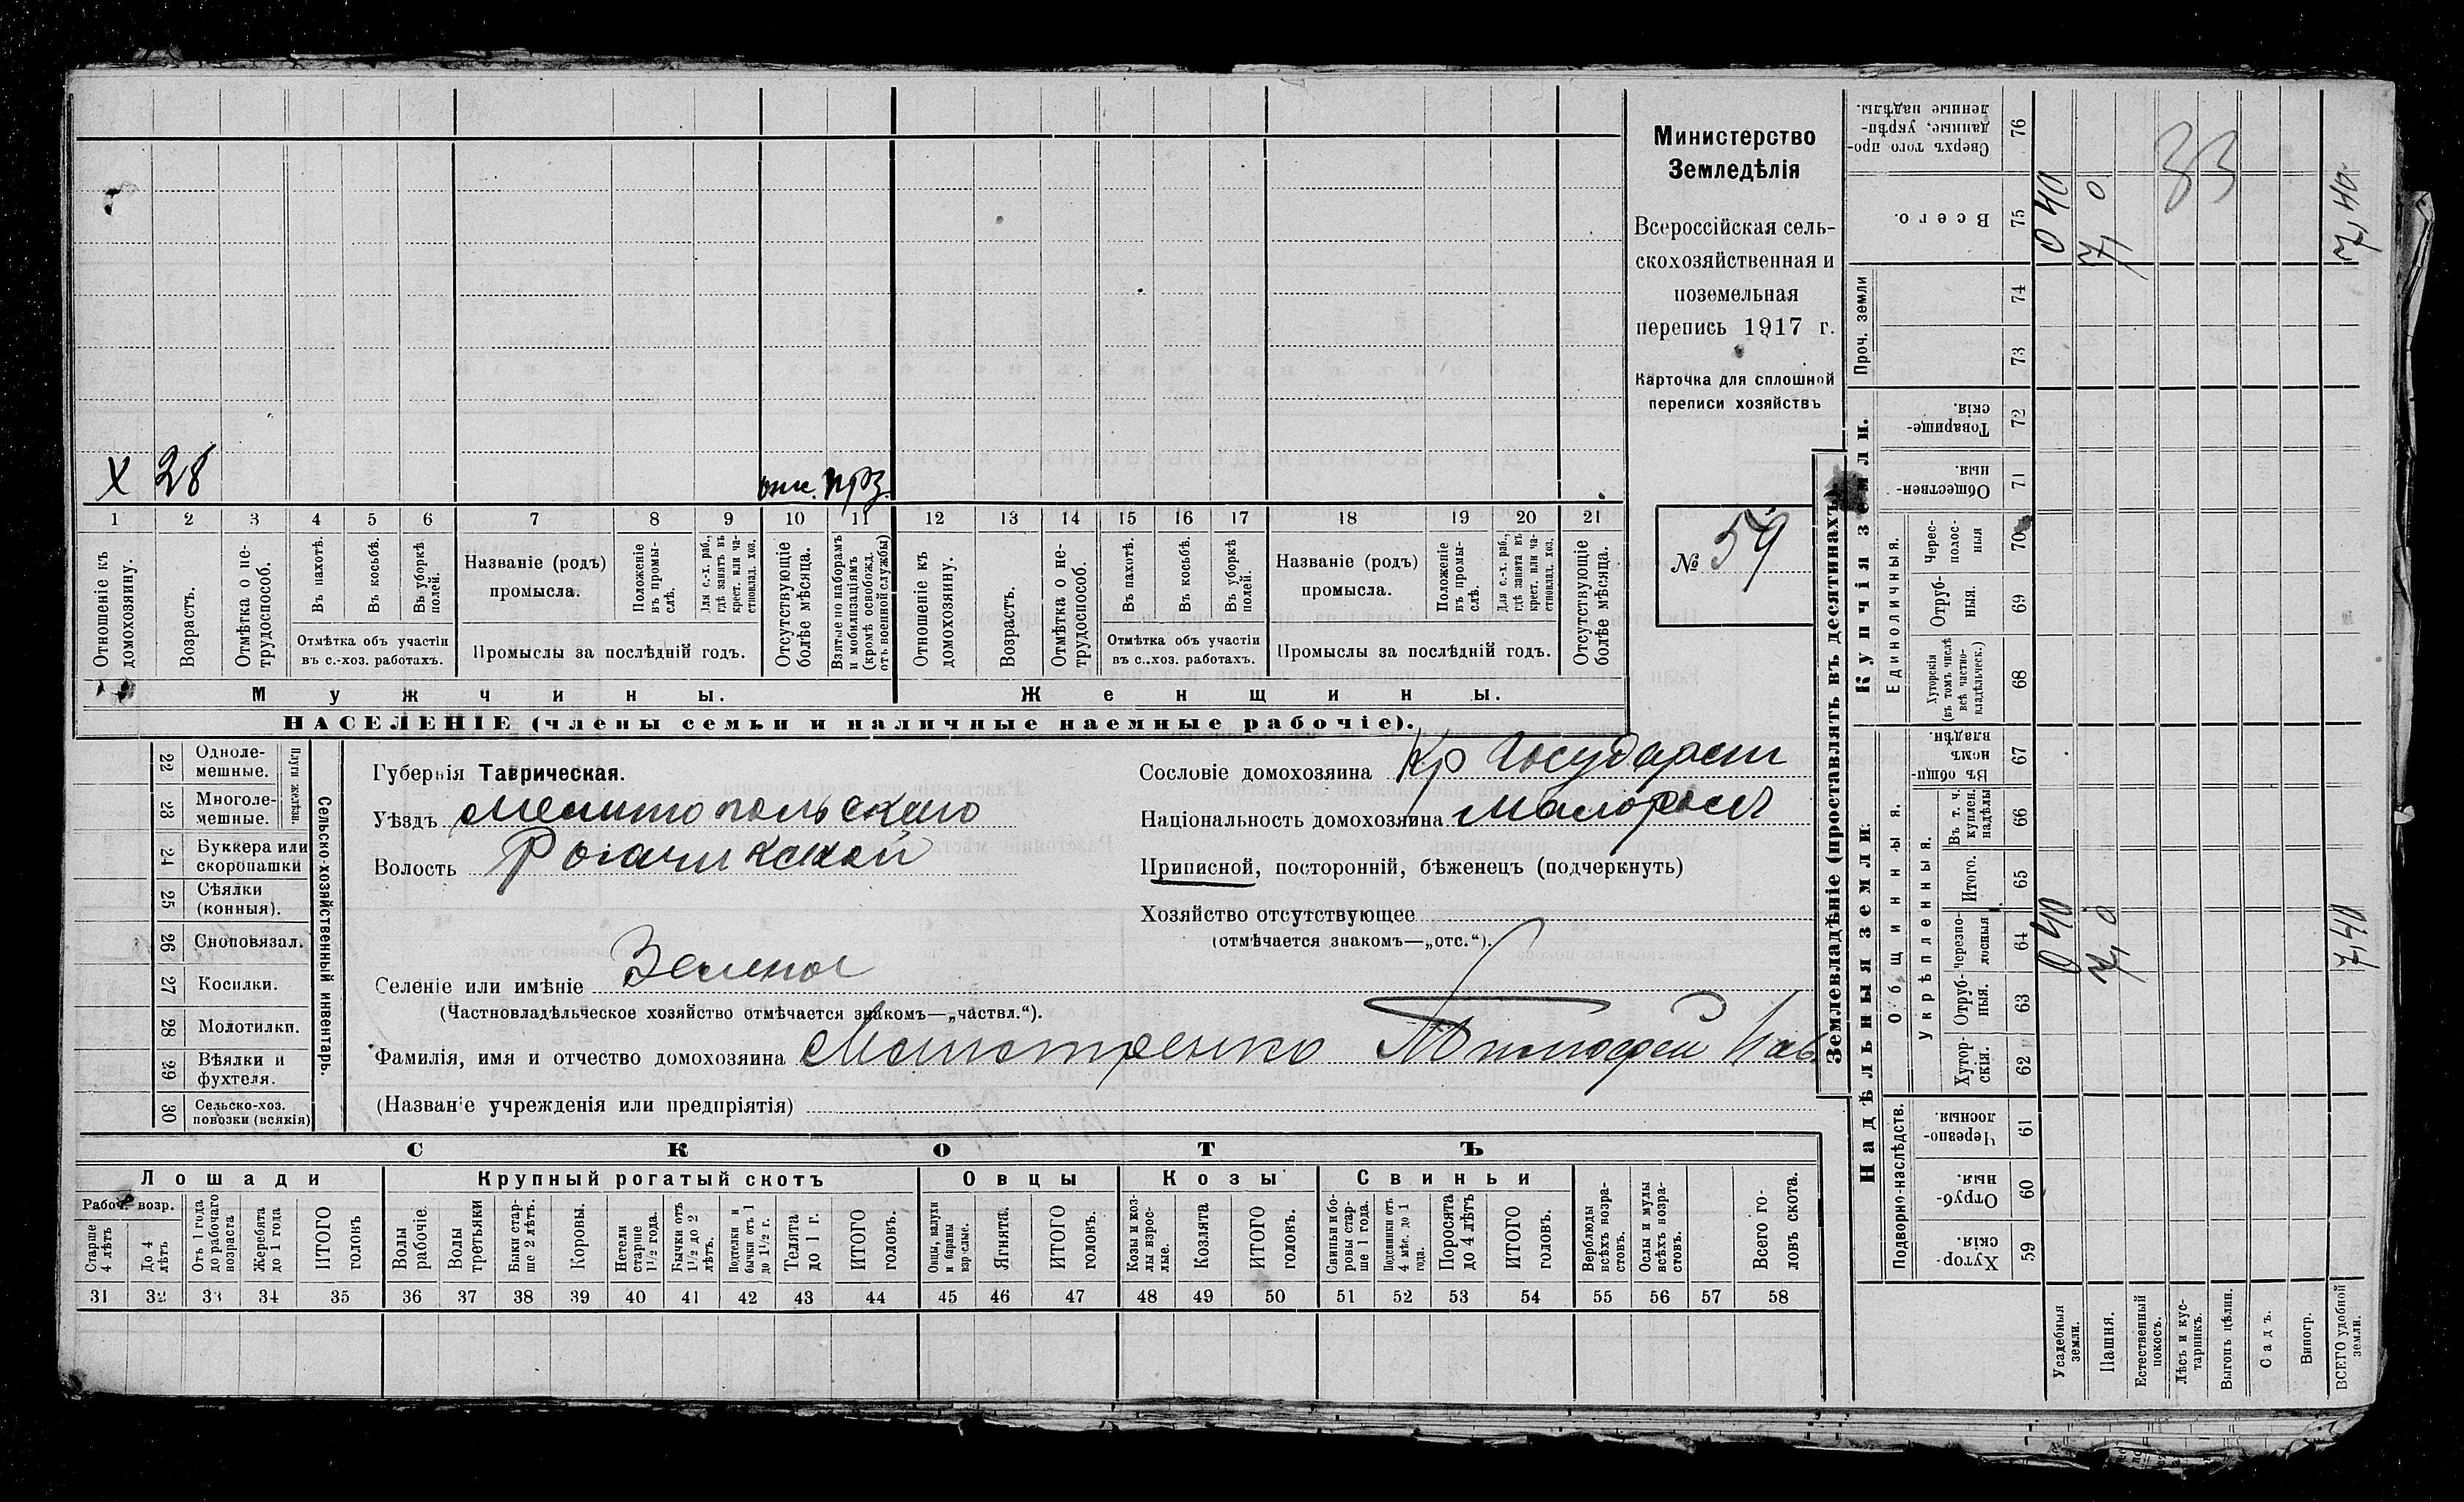 Министерство
Земледѣлія
Всероссійская сель-
скохозяйственная и
поземельная
перепись 1917 г.
Карточка для сплошной
переписи хозяйствъ
№ 59
X 28 отс.
1 2 3 4 5 6 7 8 9 10 11 12 13 14 15 16 17 18 19 20 21
Отношеніе къ домохозяину.
Возрастъ.
Отмѣтка о не-трудоспособ.
Въ пахотѣ.
Въ косьбѣ.
Въ уборкѣ полей.
Отмѣтка объ участіи
въ с.-хоз. работахъ.
Названіе (родъ)
промысла.
Положеніе въ промы-слѣ.
Для с.-х. раб., гдѣ занятъ въ крест. или ча-стновлад. хоз.
Промыслы за послѣдній годъ.
Отсутствующіе болѣе мѣсяца.
Взятые по наборамъ и мобилизаціямъ (кромѣ освобожд. отъ военной службы)
Отношеніе къ домохозяину.
Возрастъ.
Отмѣтка о не-трудоспособ.
Въ пахотѣ.
Въ косьбѣ.
Въ уборкѣ полей.
Отмѣтка объ участіи
въ с.-хоз. работахъ.
Названіе (родъ)
промысла.
Положеніе въ промы-слѣ.
Для с.-х. раб., гдѣ занята въ крест. или ча-стновлад. хоз.
Промыслы за послѣдній годъ.
Отсутствующіе болѣе мѣсяца.
Мужчины. Женщины.
НАСЕЛЕНІЕ (члены семьи и наличные наемные рабочіе).
Сельско-хозяйственный инвентарь.
Плуги желѣзн.
22 Одноле-мешные.
23 Многоле-мешные.
24 Буккера или скоропашки
25 Сѣялки (конныя).
26 Сноповязал.
27 Косилки.
28 Молотилки.
29 Вѣялки и фухтеля.
30 Сельско-хоз. повозки (всякія)
Губернія Таврическая.
Уѣздъ Мелитопольскаго
Волость Рогачикской
Сословіе домохозяина Кр Государст
Національность домохозяина Малоросъ
Приписной, посторонній, бѣженецъ (подчеркнуть)
Хозяйство отсутствующее
(отмѣчается знакомъ—„отс.“).
Селеніе или имѣніе Зеленое
(Частновладѣльческое хозяйство отмѣчается знакомъ—„частвл.“).
Фамилія, имя и отчество домохозяина Тимофей
(Названіе учрежденія или предпріятія)
СКОТЪ
Лошади Крупный рогатый скотъ Овцы Козы Свиньи
Рабоч. возр.
Старше 4 лѣтъ
До 4 лѣтъ
Отъ 1 года до рабочаго возраста
Жеребята до 1 года
ИТОГО головъ
Волы рабочіе.
Волы третьяки
Быки стар-ше 2 лѣтъ.
Коровы.
Нетели старше 1½ года.
Бычки отъ 1½ до 2 лѣтъ.
Подтелки и бычки отъ 1 до 1½ г.
Телята до 1 г.
ИТОГО головъ.
Овцы, валухи и бараны взрослые.
Ягнята.
ИТОГО головъ.
Козы и коз-лы взрос-лые.
Козлята
ИТОГО головъ.
Свиньи и бо-ровы стар-ше 1 года.
Подсвинки отъ 4 мѣс. до 1 года.
Поросята до 4 лѣтъ
ИТОГО головъ.
Верблюды всѣхъ возра-стовъ.
Ослы и мулы всѣхъ возра-стовъ.
Всего го-ловъ скота.
31 32 33 34 35 36 37 38 39 40 41 42 43 44 45 46 47 48 49 50 51 52 53 54 55 56 57 58
Землевладѣніе (проставлять въ десятинахъ)
Надѣльныя земли.
Купчія земли.
Проч. земли
Подворно-наслѣдств.
Общинныя.
Укрѣпленныя.
Единоличныя.
Хутор-скія. 59
Отруб-ныя. 60
Черезпо-лосныя. 61
Хутор-скія. 62
Отруб-ныя. 63
Черезпо-лосныя 64
Итого. 65
Въ т. ч. куплен. надѣлы 66
Въ общи-номъ владѣн. 67
Хуторскія (въ томъ числѣ всѣ частно-владѣльческ.) 68
Отруб-ныя. 69
Черес-полос-ныя 70
Обществен-ныя. 71
Товарище-скія. 72
73
74
Всего. 75
Сверхъ того про-данные, укрѣп-ленные надѣлы. 76
Усадебныя земли. 0 40 0 40
Пашня. 7,0 7,0
Естественный покосъ.
Лѣсъ и кус-тарникъ.
Выгонъ цѣлин.
Садъ.
Виногр.
ВСЕГО удобной земли. 7,40 7,40
33